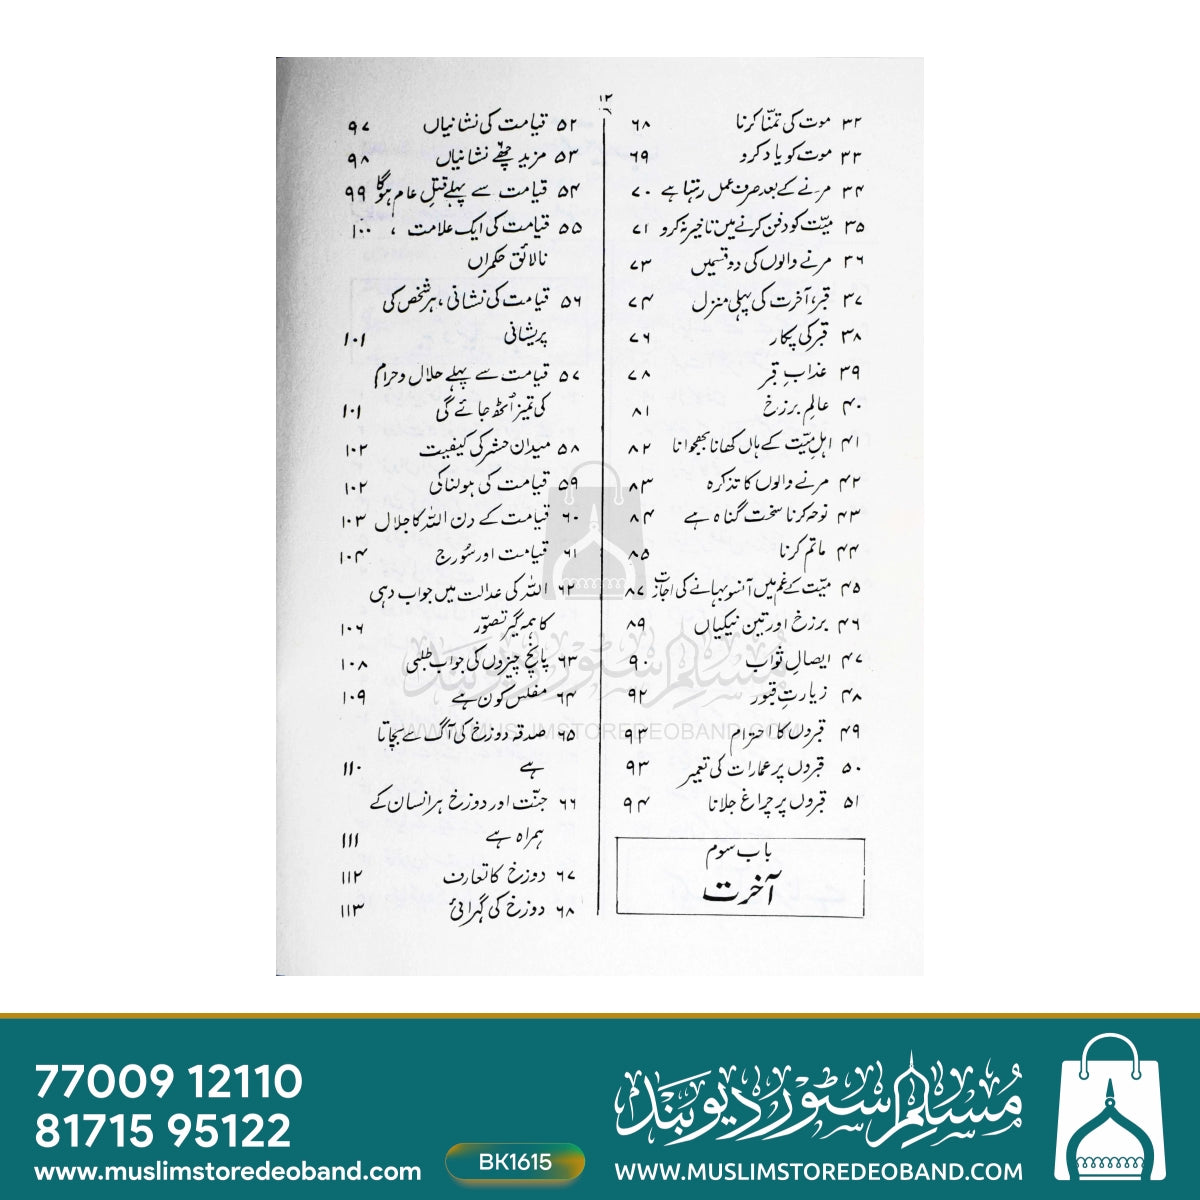 ۱۲
۳۲ موت کی تمنّا کرنا ۶۸
۳۳ موت کو یاد کرو ۶۹
۳۴ مرنے کے بعد صرف عمل رہتا ہے ۷۰
۳۵ میّت کو دفن کرنے میں تاخیر نہ کرو ۷۱
۳۶ مرنے والوں کی دو قسمیں ۷۳
۳۷ قبر، آخرت کی پہلی منزل ۷۴
۳۸ قبر کی پکار ۷۶
۳۹ عذابِ قبر ۷۸
۴۰ عالمِ برزخ ۸۱
۴۱ اہلِ میّت کے ہاں کھانا بھجوانا ۸۲
۴۲ مرنے والوں کا تذکرہ ۸۳
۴۳ نوحہ کرنا سخت گناہ ہے ۸۴
۴۴ ماتم کرنا ۸۵
۴۵ میّت کے غم میں آنسو بہانے کی اجازت ۸۷
۴۶ برزخ اور تین نیکیاں ۸۹
۴۷ ایصالِ ثواب ۹۰
۴۸ زیارتِ قبور ۹۲
۴۹ قبروں کا احترام ۹۳
۵۰ قبروں پر عمارات کی تعمیر ۹۳
۵۱ قبروں پر چراغ جلانا ۹۴
باب سوم
آخرت
۵۲ قیامت کی نشانیاں ۹۷
۵۳ مزید چھٹے نشانیاں ۹۸
۵۴ قیامت سے پہلے قتلِ عام ہوگا ۹۹
۵۵ قیامت کی ایک علامت ، ۱۰۰
نالائق حکمراں
۵۶ قیامت کی نشانی، ہر شخص کی
پریشانی ۱۰۱
۵۷ قیامت سے پہلے حلال و حرام
کی تمیز اُٹھ جائے گی ۱۰۱
۵۸ میدان حشر کی کیفیت ۱۰۲
۵۹ قیامت کی ہولناکی ۱۰۲
۶۰ قیامت کے دن اللّٰہ کا جلال ۱۰۳
۶۱ قیامت اور سُورج ۱۰۴
۶۲ اللّٰہ کی عدالت میں جواب دہی
کا ہمہ گیر تصوّر ۱۰۶
۶۳ پانچ چیزوں کی جواب طلبی ۱۰۸
۶۴ مفلس کون ہے ۱۰۹
۶۵ صدقہ دوزخ کی آگ سے بچاتا
ہے ۱۱۰
۶۶ جنّت اور دوزخ ہر انسان کے
ہمراہ ہے ۱۱۱
۶۷ دوزخ کا تعارف ۱۱۲
۶۸ دوزخ کی گہرائی ۱۱۳
مسلم سٹور دیوبند
WWW.MUSLIMSTOREDEOBAND.COM
77009 12110
81715 95122
www.muslimstoredeoband.com
BK1615
مُسلم سٹور دیوبند
WWW.MUSLIMSTOREDEOBAND.COM